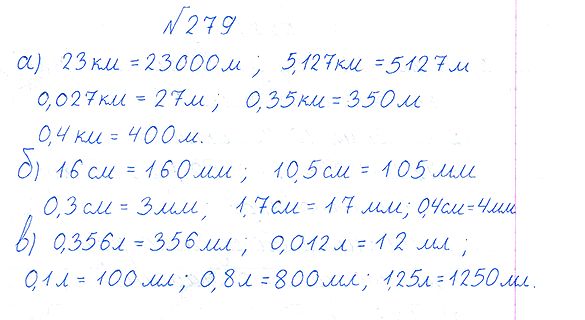 №279
а) 23км = 23000м ; 5,127км = 5127м
0,027км = 27м ; 0,35км = 350м
0,4км = 400м.
б) 16см = 160мм ; 10,5см = 105мм
0,3см = 3мм ; 1,7см = 17мм ; 0,4см = 4мм
в) 0,356л = 356мл ; 0,012л = 12 мл ;
0,1л = 100мл ; 0,8л = 800мл ; 1,25л = 1250мл.